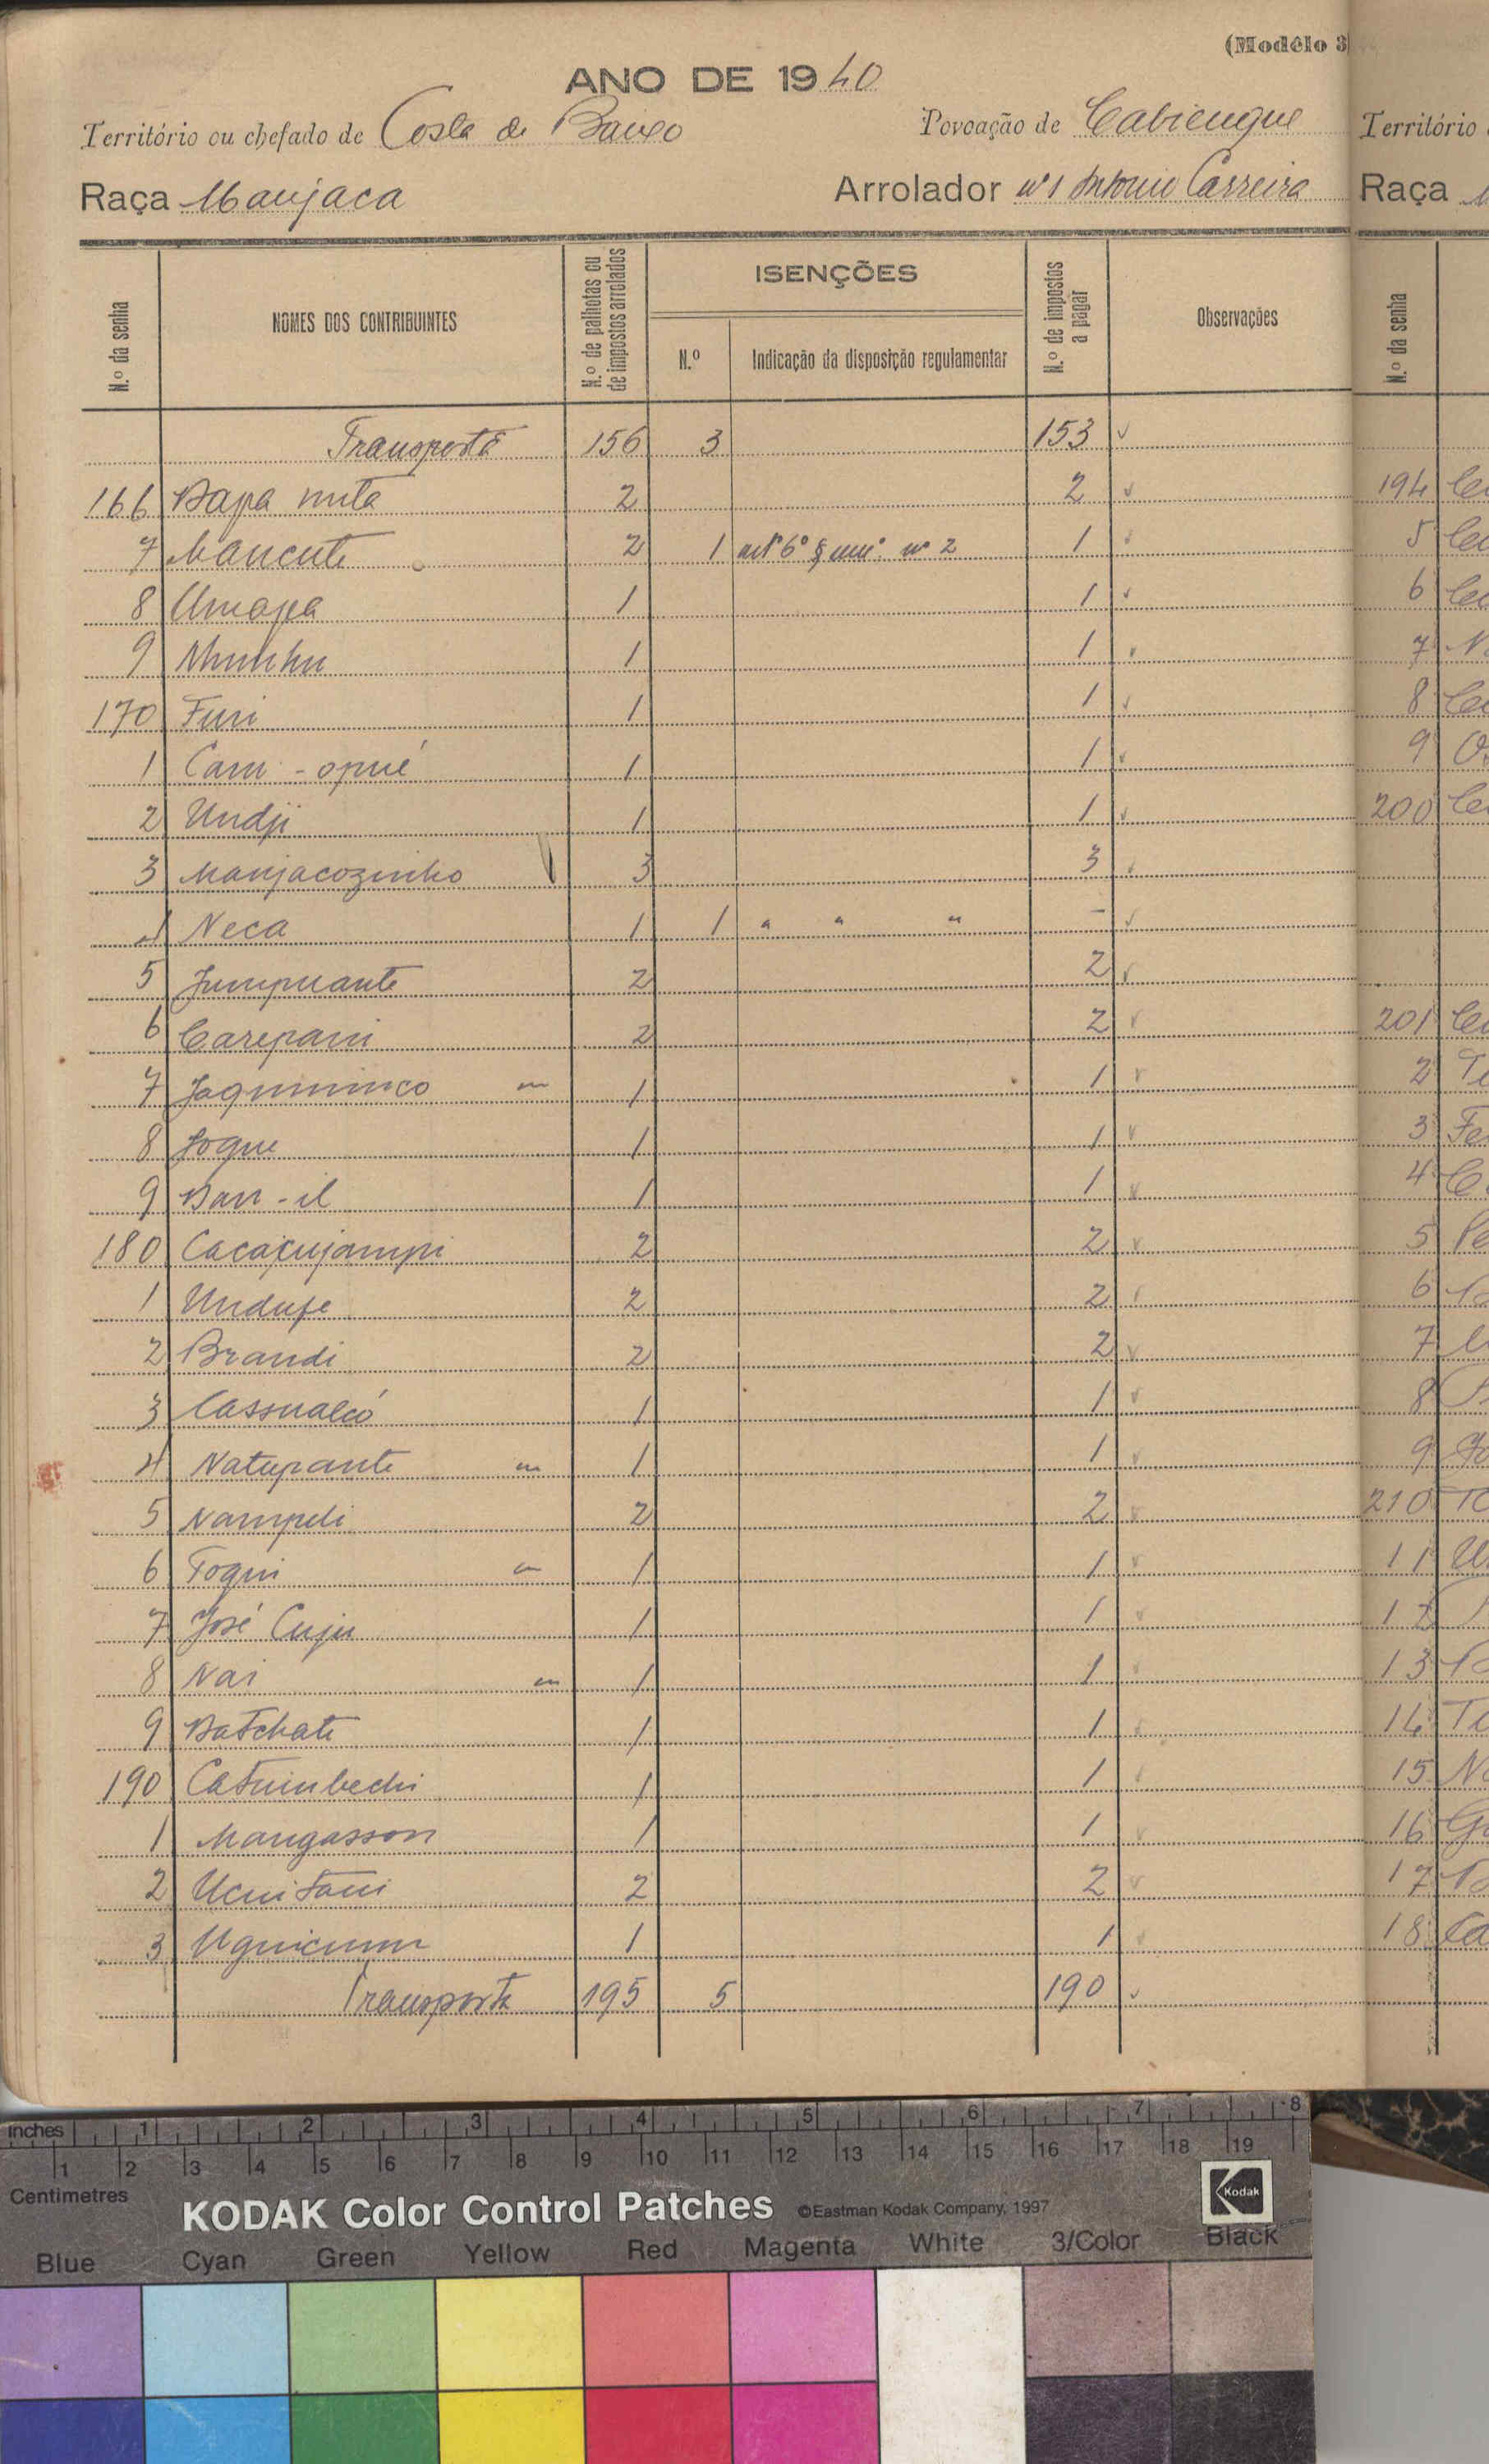 (Modêlo 3
ANO DE 1940
Território ou chefado de Costa de Baixo Povoação de Cabiengue
Raça Manjaca Arrolador nº1 Antonio Carreira
N.º da senha NOMES DOS CONTRIBUINTES N.º de palhotas ou de impostos arrolados ISENÇÕES N.º de impostos a pagar Observações
N.º Indicação da disposição regulamentar
Transporte 156 3 153
166 Dapa nuta 2 2
7 Mancute 2 1 artº 6º § uniº nº 2 1
8 Umapa 1 1
9 Nhunhu 1 1
170 Furi 1 1
1 Cam-opué 1 1
2 Undji 1 1
3 Manjacozinho 3 3
4 Neca 1 1 " " " -
5 Jumpuante 2 2
6 Carepani 2 2
7 Jaquminco 1 1
8 Joque 1 1
9 Dan-il 1 1
180 Cacacujampi 2 2
1 Undufe 2 2
2 Brandi 2 2
3 Cassualcó 1 1
4 Natupante 1 1
5 Nampeli 2 2
6 Toqui 1 1
7 José Cuju 1 1
8 Nai 1 1
9 Datchate 1 1
190 Catuimbechi 1 1
1 Mangasson 1 1
2 Ucuitani 2 2
3 Uguicumm 1 1
Transporte 195 5 190
Território
Raça
N.º da senha
194
5
6
7
8
9
200
201
2
3
4
5
6
7
8
9
210
11
12
13
14
15
16
17
18
inches 1 2 3 4 5 6 7 8
1 2 3 4 5 6 7 8 9 10 11 12 13 14 15 16 17 18 19
Centimetres
KODAK Color Control Patches ©Eastman Kodak Company, 1997 Kodak
Blue Cyan Green Yellow Red Magenta White 3/Color Black